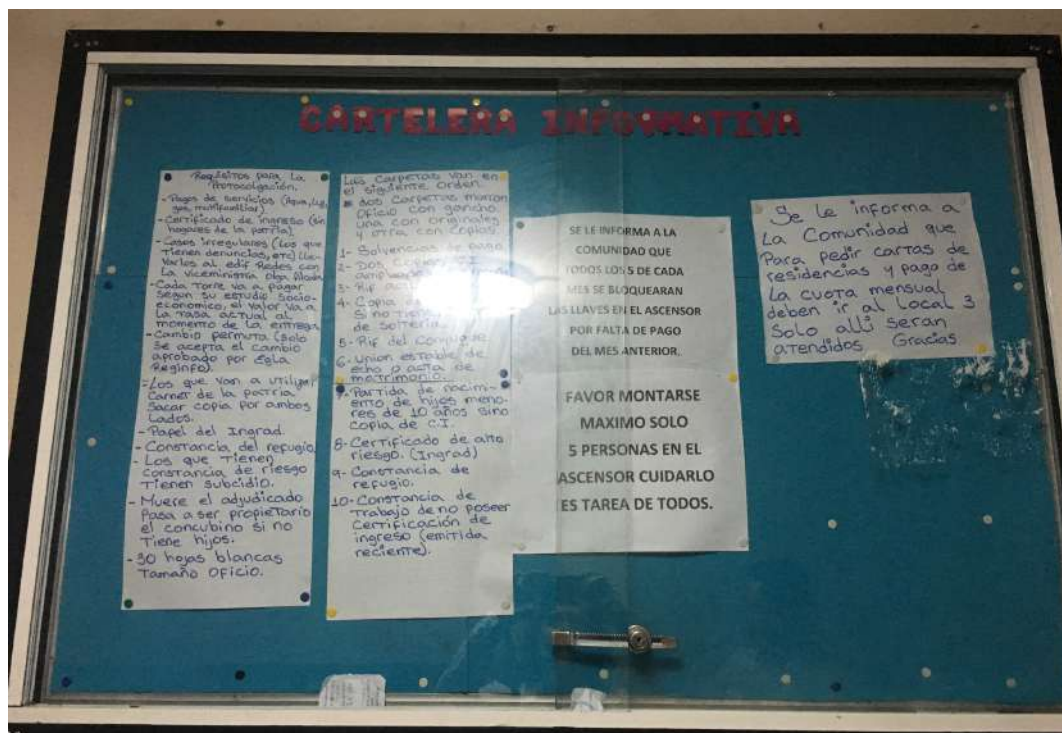 CARTELERA INFORMATIVA
Requisitos para La
Protocolgación.
- Pagos de servicios (Agua, Luz,
gas, multifamiliar)
- Certificado de ingreso (sin
hogares de la patria)
- Casos irregulares (Los que
Tienen denuncias, etc) lle-
varlos al edif Redes con
La viceministra Olga
- Cada Torre va a pagar
segun su estudio socio-
económico, el valor va a
La Tasa actual al
momento de la entrega
- Cambio permuta (solo
se acepta el cambio
aprobago por
Reginfo).
- Los que van a utilizar
Carnet de la patria
sacar copia por ambos
Lados.
- Papel del Ingrad.
- Constancia del refugio
- Los que Tienen
constancia de riesgo
Tienen subcidio.
- Muere el adjudicado
Pasa a ser propietario
el concubino si no
Tiene hijos.
- 30 hojas blancas
Tamaño oficio.
Las Carpetas van en
el siguiente orden
dos Carpetas marron
oficio con gancho
una con originales
y otra con copias.
1- Solvencias de pago
2- Dos Copias
3- Rif
4- Copia
Si no Tiene
de solteria.
5- Rif del Conyugue
6- Union estable de
echo o acta de
matrimonio.
7- Partida de nacimi-
ento de hijos meno-
res de 10 años sino
copia de C.I.
8- Certificado de alto
riesgo. (Ingrad)
9- Constancia de
refugio.
10- Constancia de
Trabajo de no poseer
Certificación de
ingreso (emitida
reciente).
SE LE INFORMA A LA
COMUNIDAD QUE
TODOS LOS 5 DE CADA
MES SE BLOQUEARAN
LAS LLAVES EN EL ASCENSOR
POR FALTA DE PAGO
DEL MES ANTERIOR.
FAVOR MONTARSE
MAXIMO SOLO
5 PERSONAS EN EL
ASCENSOR CUIDARLO
ES TAREA DE TODOS.
Se Le informa a
La Comunidad que
Para pedir cartas de
residencias y pago de
La cuota mensual
deben ir al local 3
Solo allí seran
atendidos Gracias